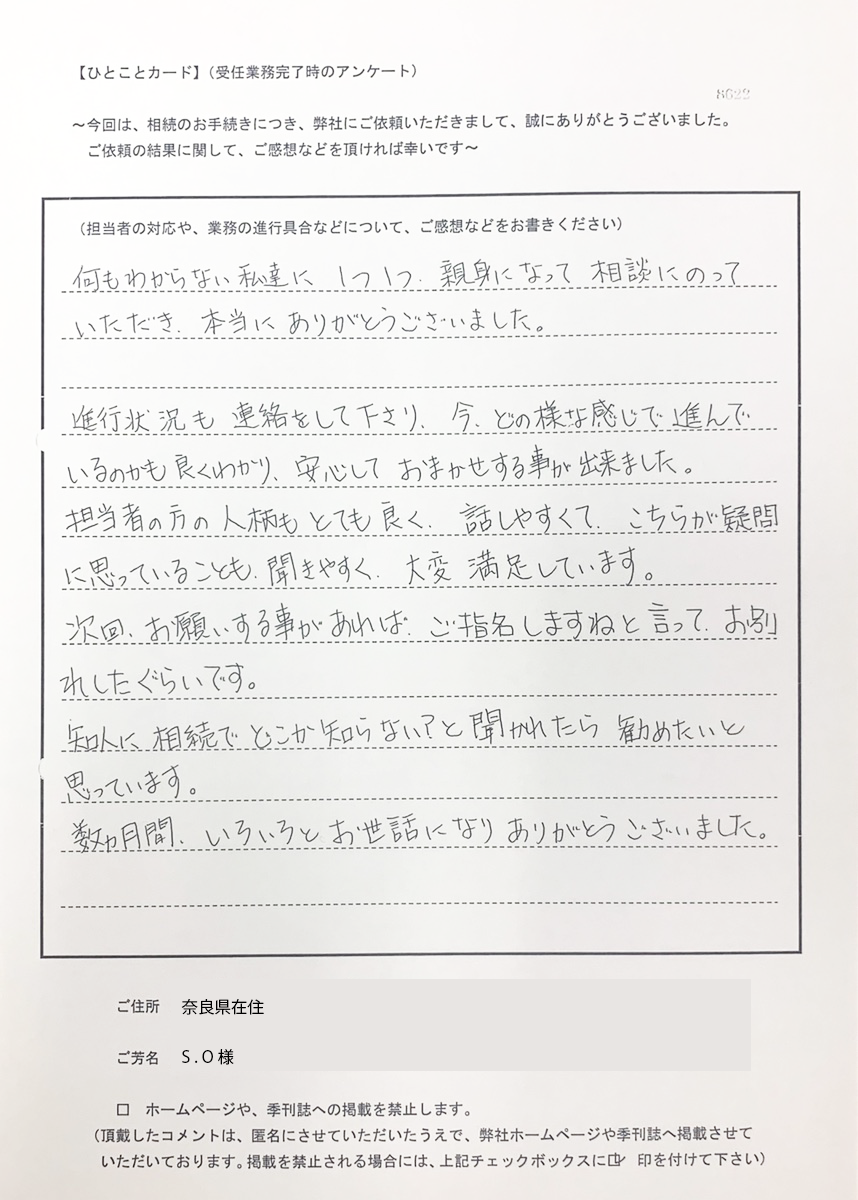 【ひとことカード】（受任業務完了時のアンケート）
8622
～今回は、相続のお手続きにつき、弊社にご依頼いただきまして、誠にありがとうございました。
ご依頼の結果に関して、ご感想などを頂ければ幸いです～
（担当者の対応や、業務の進行具合などについて、ご感想などをお書きください）
何もわからない私達に 1つ1つ、親身になって 相談にのって
いただき、本当に ありがとうございました。
進行状況も 連絡をして下さり、今、どの様な感じで進んで
いるのかも良くわかり、安心して おまかせする事が出来ました。
担当者の方の人柄もとても良く、話しやすくて、こちらが疑問
に思っていることも、聞きやすく、大変 満足しています。
次回、お願いする事があれば、ご指名しますねと言って、お別
れしたぐらいです。
知人に 相続で どこか知らない？と聞かれたら 勧めたいと
思っています。
数ヵ月間、いろいろと お世話になり ありがとうございました。
ご住所 奈良県在住
ご芳名 S.O様
□ ホームページや、季刊誌への掲載を禁止します。
（頂戴したコメントは、匿名にさせていただいたうえで、弊社ホームページや季刊誌へ掲載させて
いただいております。掲載を禁止される場合には、上記チェックボックスに☑ 印を付けて下さい）